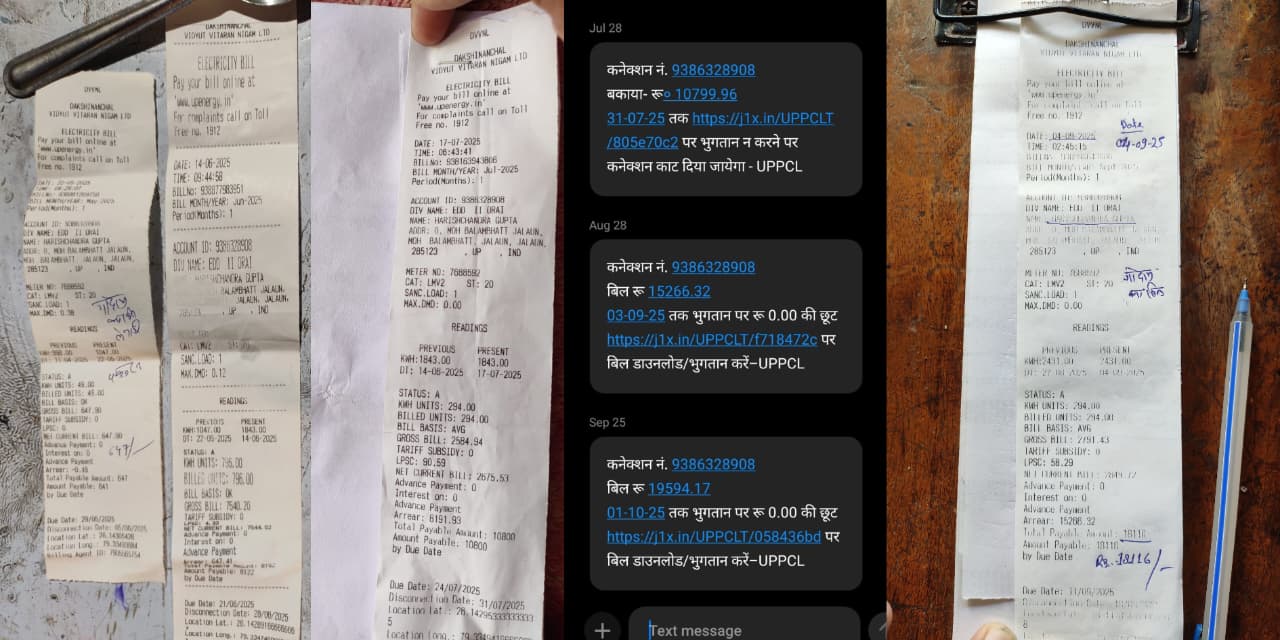 DVVNL
DAKSHINANCHAL
VIDYUT VITARAN NIGAM LTD
ELECTRICITY BILL
Pay your bill online at
'www.upenergy.in'
For complaints call on Toll
Free no. 1912
BILL MONTH/YEAR: May-2025
Period(Months): 1
DIV NAME: EDD II ORAI
NAME: HARISHCHANDRA GUPTA
ADDR: 0, MOH BALAMBHATT, JALAUN, JALAUN,
285123 , UP , IND
METER NO: 7688592
CAT: LMV2 ST: 20
SANC.LOAD: 1
MAX.DMD: 0.38
READINGS
PREVIOUS PRESENT
KWH:998.00 1047.00
STATUS: A
KWH UNITS: 49.00
BILLED UNITS: 49.00
BILL BASIS: OK
GROSS BILL: 647.90
TARIFF SUBSIDY: 0
LPSC: 0
NET CURRENT BILL: 647.90
Advance Payment: 0
Interest on: 0
Advance Payment
647/-
Total Payable Amount: 647
by Due Date
DAKSHINANCHAL
VIDYUT VITARAN NIGAM LTD
ELECTRICITY BILL
Pay your bill online at
'www.upenergy.in'
For complaints call on Toll
Free no. 1912
DATE: 14-06-2025
TIME: 09:44:58
BILLNo: 938877983951
BILL MONTH/YEAR: Jun-2025
Period(Months): 1
ACCOUNT ID: 9386328908
DIV NAME: EDD II ORAI
HARISHCHANDRA GUPTA
BALAMBHATT, JALAUN,
JALAUN,
, UP , IND
CAT: LMV2
SANC.LOAD: 1
MAX.DMD: 0.12
READINGS
PREVIOUS PRESENT
KWH:1047.00 1843.00
DT: 22-05-2025 14-06-2025
STATUS: A
KWH UNITS: 796.00
BILLED UNITS: 796.00
BILL BASIS: OK
GROSS BILL: 7540.20
TARIFF SUBSIDY: 0
Advance Payment: 0
Interest on: 0
Advance Payment
by Due Date
Due Date: 21/06/2025
Disconnection Date: 28/06/2025
DVVNL
DAKSHINANCHAL
VIDYUT VITARAN NIGAM LTD
ELECTRICITY BILL
Pay your bill online at
'www.upenergy.in'
For complaints call on Toll
Free no. 1912
DATE: 17-07-2025
TIME: 06:43:41
BILLNo: 938163943866
BILL MONTH/YEAR: Jul-2025
Period(Months): 1
ACCOUNT ID: 9386328908
DIV NAME: EDD II ORAI
NAME: HARISHCHANDRA GUPTA
ADDR: 0, MOH BALAMBHATT, JALAUN,
MOH BALAMBHATT, JALAUN, JALAUN,
285123 , UP , IND
METER NO: 7688592
CAT: LMV2 ST: 20
SANC.LOAD: 1
MAX.DMD: 0.00
READINGS
PREVIOUS PRESENT
KWH:1843.00 1843.00
DT: 14-06-2025 17-07-2025
STATUS: A
KWH UNITS: 294.00
BILLED UNITS: 294.00
BILL BASIS: AVG
GROSS BILL: 2584.94
TARIFF SUBSIDY: 0
LPSC: 90.59
NET CURRENT BILL: 2675.53
Advance Payment: 0
Interest on: 0
Advance Payment
Arrear: 8191.93
Total Payable Amount: 10800
Amount Payable: 10800
by Due Date
Due Date: 24/07/2025
Disconnection Date: 31/07/2025
5
Jul 28
कनेक्शन नं. 9386328908
बकाया- रू० 10799.96
31-07-25 तक https://j1x.in/UPPCLT
/805e70c2 पर भुगतान न करने पर
कनेक्शन काट दिया जायेगा - UPPCL
Aug 28
कनेक्शन नं. 9386328908
बिल रू 15266.32
03-09-25 तक भुगतान पर रू 0.00 की छूट
https://j1x.in/UPPCLT/f718472c पर
बिल डाउनलोड/भुगतान करें–UPPCL
Sep 25
कनेक्शन नं. 9386328908
बिल रू 19594.17
01-10-25 तक भुगतान पर रू 0.00 की छूट
https://j1x.in/UPPCLT/058436bd पर
बिल डाउनलोड/भुगतान करें–UPPCL
Text message
DVVNL
DAKSHINANCHAL
VIDYUT VITARAN NIGAM LTD
ELECTRICITY BILL
Pay your bill online at
'www.upenergy.in'
For complaint call on Toll
Free no. 1912
DATE: 04-09-2025
Date
04-09-25
TIME: 02:45:15
Period(Months): 1
DIV NAME: EDD II ORAI
NAME: HARISHCHANDRA GUPTA
285123 , UP , IND
METER NO: 7688592
CAT: LMV2 ST: 20
SANC.LOAD: 1
MAX.DMD: 0.00
READINGS
PREVIOUS PRESENT
KWH:2431.00 2431.00
STATUS: A
KWH UNITS: 294.00
BILLED UNITS: 294.00
BILL BASIS: AVG
GROSS BILL: 2791.43
TARIFF SUBSIDY: 0
LPSC: 58.29
Advance Payment: 0
Interest on: 0
Advance Payment
Arrear: 15266.32
Total Payable Amount: 18116
Amount Payable: 18116
by Due Date
Rs. 18116/-